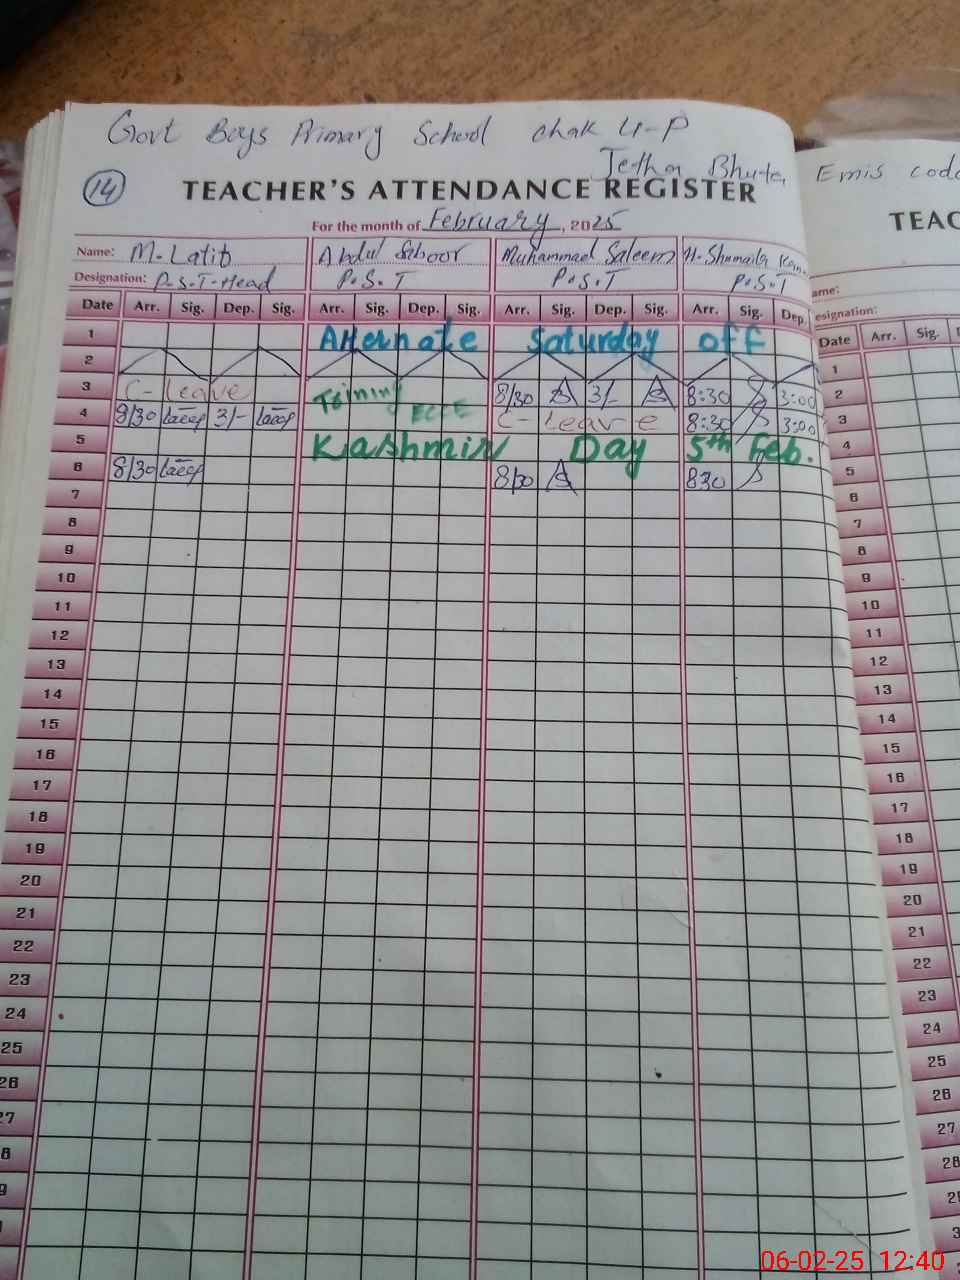 Govt Boys Primary School chak 4-P
Jetha Bhuta Emis code
14 TEACHER'S ATTENDANCE REGISTER TEAC
For the month of February, 2025
Name: M. Latib Abdul Saboor Muhammad Saleem H. Shumaila
Designation: P.S.T-Head P.S.T P.S.T P.S.T
Date Arr. Sig. Dep. Sig. Arr. Sig. Dep. Sig. Arr. Sig. Dep. Sig. Arr. Sig. Dep.
1 Alternate Saturday off
2
3 C-leave Training 8/30 3/- 8:30 3:00
4 8/30 3/- ECCE C-leave 8:30 3:00
5 Kashmir Day 5th Feb.
6 8/30 8/30 830
7
8
9
10
11
12
13
14
15
16
17
18
19
20
21
22
23
24
25
26
27
8
9
ame:
esignation:
Date Arr. Sig.
1
2
3
4
5
6
7
8
9
10
11
12
13
14
15
16
17
18
19
20
21
22
23
24
25
26
27
28
06-02-25 12:40